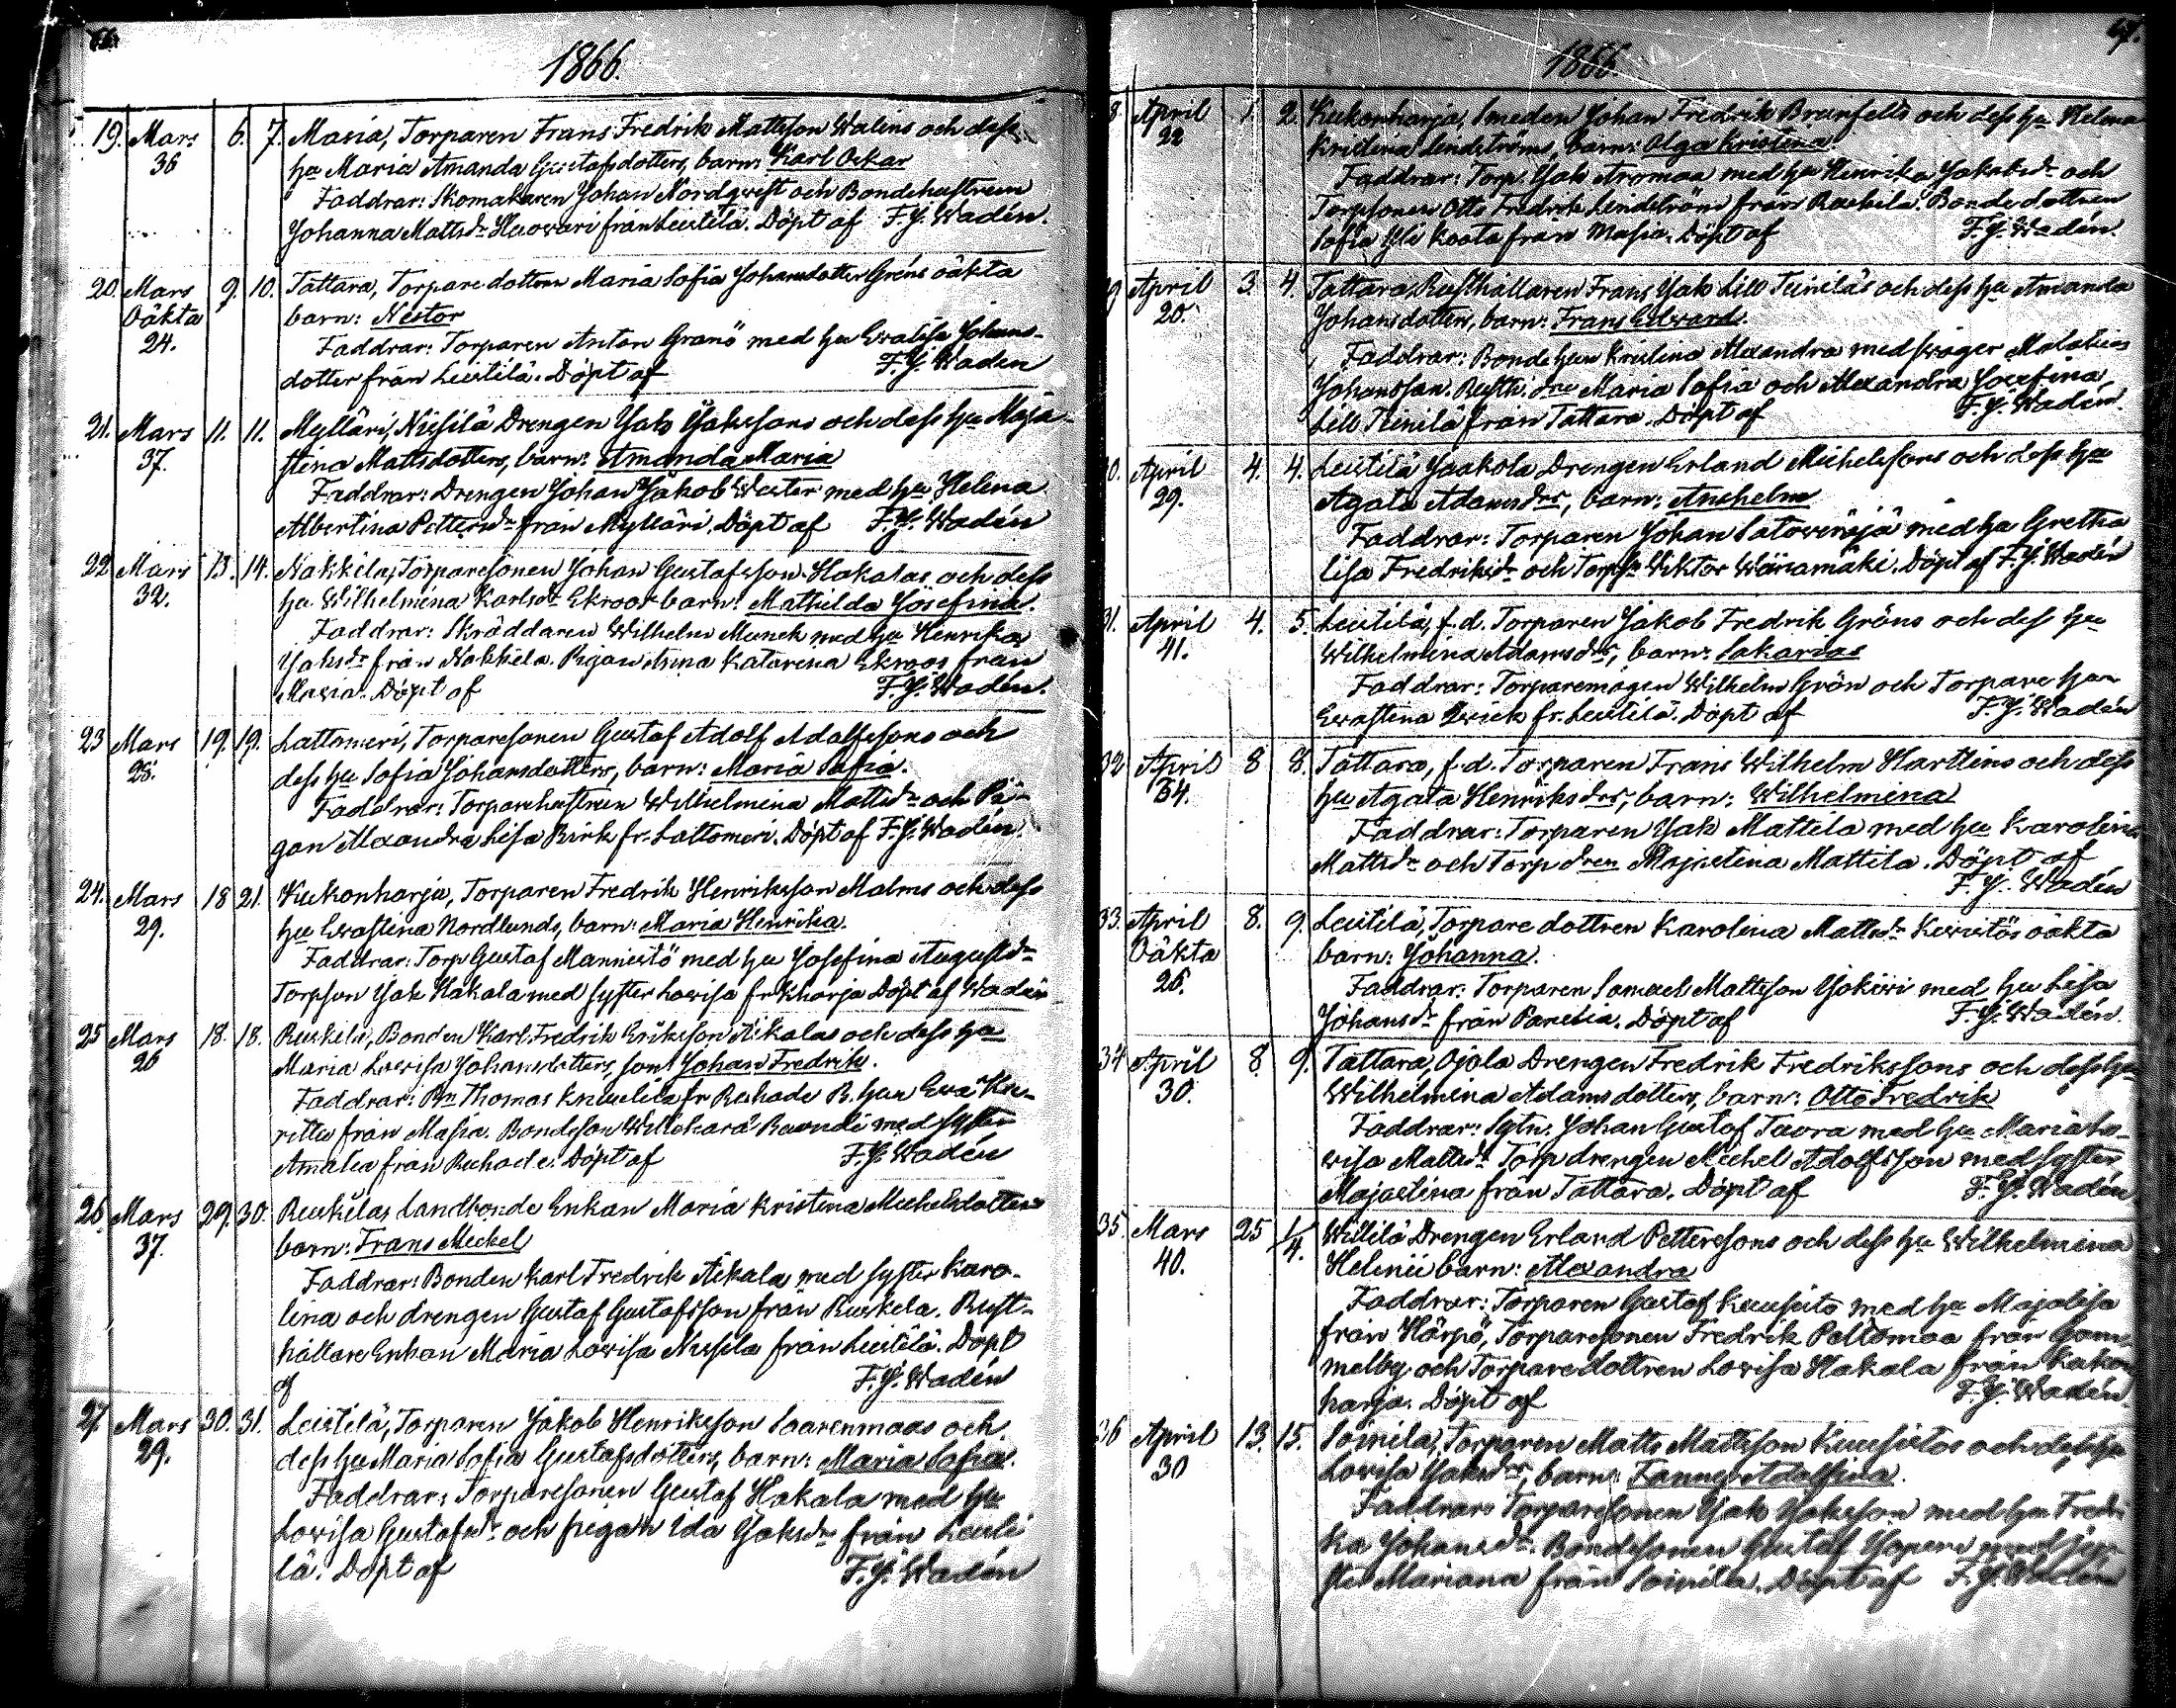 66.
1866.
19. Mars 6. 7. Masia, Torparen Frans Fredrik Mattsson Walins och dess
36 hu Maria Amanda Gustafsdotters, barn: Karl Oskar
Faddrar: Skomakaren Johan Nordqvist och Bondehustrun
Johanna Mattsdr Haavari från Leistilä. Döpt af F.J. Wadén.
20. Mars 9. 10. Tattara, Torparedottren Maria Sofia Johansdotter Gréns oäkta
Oäkta barn: Nestor
24. Faddrar: Torparen Anton Granö med hu Evalisa Johans-
dotter från Leistilä. Döpt af F.J. Wadén
21. Mars 11. 11. Mylläri, Niisilä Drengen Jak Jakssons och dess hu Maja
37. stina Mattsdotters, barn: Amanda Maria
Faddrar: Drengen Johan Jakob Wester med hu Helena
Albertina Pettersdr från Mylläri. Döpt af F.J. Wadén
22 Mars 13. 14. Nakkila, Torparesonen Johan Gustafsson Hakalas och dess
32. hu Wilhelmina Karlsdr Ekroos barn: Mathilda Josefina.
Faddrar: Skräddaren Wilhelm Munck med hu Henrika
Jaksdr från Nakkila. Pigan Anna Katarina Ekroos från
Masia. Döpt af F.J. Wadén.
23 Mars 19. 19. Lattomeri, Torparesonen Gustaf Adolf Adolfssons och
28. dess hu Sofia Johansdotters, barn: Maria Sofia.
Faddrar: Torparehustrun Wilhelmina Mattsdr och Pi-
gan Alexandra Lisa Birk fr. Lattomeri. Döpt af F.J. Wadén.
24. Mars 18 21. Kukonharja, Torparen Fredrik Henriksson Malms och dess
29. hu Evastina Nordlunds, barn: Maria Henrika.
Faddrar: Torp Gustaf Mannistö med hu Josefina Augustdr
Torpson Jak Hakala med syster Lovisa fr Kharja Döpt af Wadén
25 Mars 18. 18. Ruskila, Bonden Karl Fredrik Eriksson Äikalas och dess hu
26 Maria Lovisa Johansdotters, son Johan Fredrik.
Faddrar: Bn Thomas Knuutila fr Ruhade B. hun Eva
från Masia. Bondeson med syster
Amalia från Ruhade. Döpt af F.J. Wadén
26. Mars 29. 30. Ruskilas Landbonde Enkan Maria Kristina Michelsdotters
37. barn: Frans Mickel
Faddrar: Bonden Karl Fredrik Äikala med syster Karo-
lina och drengen Gustaf Gustafsson från Ruskela. Rust-
hållare Enkan Maria Lovisa Niisila från Leistilä. Döpt
af F.J. Wadén
27. Mars 30. 31. Leistilä, Torparen Jakob Henriksson Saarenmaas och
29. dess hu Maria Sofia Gustafsdotters, barn: Maria Sofia.
Faddrar: Torparesonen Gustaf Hakala med hu
Lovisa Gustafsdr och pigan Ida Jaksdr från Leisti
lä. Döpt af F.J. Wadén
67.
1866.
8 April 1. 2. Kukonharja, Smeden Johan Fredrik Brunfelts och dess hu Helena
22 Kristina Lindströms, barn: Olga Kristina.
Faddrar: Torp. Jak Aromaa med hu Henrika Jakobsdr och
Torpsonen Otto Fredrik Lindström från Ruskila. Bondedottren
Sofia Yli Koota från Masia. Döpt af F.J. Wadén.
29 April 3. 4. Tattara, Rusthållaren Frans Jak Lill Teiniläs och dess hu Amanda
20. Johansdotters, barn: Frans Edvard.
Faddrar: Bondehun Kristina Alexandra med svåger Malakias
Johansson. Rusth. drr Maria Sofia och Alexandra Josefina,
Lill Teinilä från Tattara. Döpt af F.J. Wadén.
30. April 4. 4. Leistilä Jaakola Drengen Erland Michelssons och dess hu
29. Agata Adamsdrs, barn: Anshelm
Faddrar: Torparen Johan Satoveräjä med hu Gretha
Lisa Fredriksdr och Torpsn Wiktor Wäinämäki. Döpt af F.J. Wadén
31. April 4. 5. Leistilä, f.d. Torparen Jakob Fredrik Gröns och dess hu
41. Wilhelmina Adamsdrs, barn: Sakarias
Faddrar: Torparemågen Wilhelm Grön och Torpare hun
Evastina Qvick fr. Leistilä. Döpt af F.J. Wadén
32 April 8 8. Tattara, f.d. Torparen Frans Wilhelm Harttins och dess
34. hu Agata Henriksdrs, barn: Wilhelmina
Faddrar: Torparen Jak Mattila med hu Karolina
Mattsdr och Torpdren Majastina Mattila. Döpt af
F.J. Wadén
33. April 8. 9. Leistilä, Torparedottren Karolina Mattsdr Kivistös oäkta
Oäkta barn: Johanna.
26. Faddrar: Torparen Samuel Mattsson Jokivi med hu Lisa
Johansdr från Panelia. Döpt af F.J. Wadén.
34 April 8. 9. Tattara, Ojala Drengen Fredrik Fredrikssons och dess hu
30. Wilhelmina Adamsdotters, barn: Otto Fredrik
Faddrar: Sytn. Johan Gustaf Tuora med hu Maria Lo-
visa Mattsdr. Torpdrengen Michel Adolfsson med syster
Majastina från Tattara. Döpt af F.J. Wadén
35. Mars 25 1/4. Willilä Drengen Erland Petterssons och dess hu Wilhelmina
40. Helenii barn: Alexandra
Faddrar: Torparen Gustaf Kuusisto med hu Majalisa
från Hörpö, Torparesonen Fredrik Peltomaa från Gam-
melby och Torparedottren Lovisa Hakala från Kukon
harja. Döpt af F.J. Wadén.
36 April 13. 15. Soinila, Torparen Matts Mattsson Kuusistos och dess hu
30 Lovisa Jaksdrs, barn: Fanny Adolfina.
Faddrar: Torparesonen Jak Jaksson med hu Fredri
ka Johansdr. Bondesonen Gustaf med sy-
ster Mariana från Soinila. Döpt af F.J. Wadén